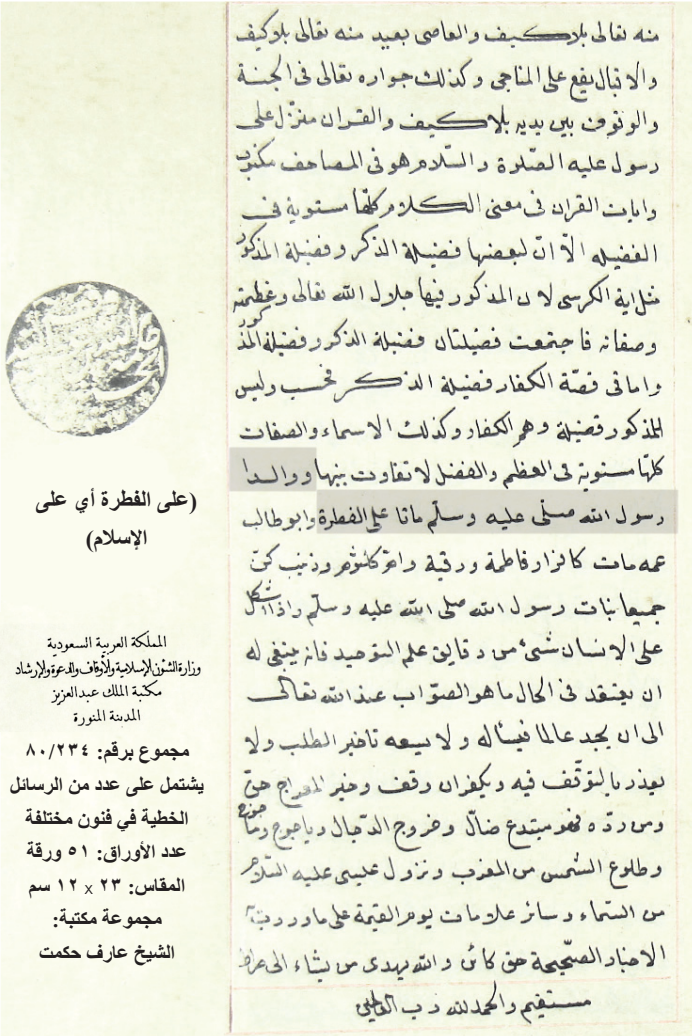 منه تعالى بلاكيف والعاصى بعيد منه تعالى بلاكيف
والاقبال يقع على المناجى وكذلك جواره تعالى فى الجنة
والوقوف بين يديه بلاكيف والقران منزل على
رسول عليه الصلوة والسلام هو فى المصاحف مكتوب
وايات القران فى معنى الكلام كلها مستوية فى
الفضيله الّا انّ لبعضها فضيلة الذكر وفضيلة المذكور
مثل اية الكرسى لان المذكور فيها جلال الله تعالى وعظمته
وصفاته فاجتمعت فضيلتان فضيلة الذكر وفضيلة المذكور
واما فى قصّة الكفار فضيلة الذكر فحسب وليس
المذكور فضيلة وهم الكفار وكذلك الاسماء والصفات
كلها مستوية فى العظم والفضل لا تفاوت بينها ووالدا
رسول الله صلى عليه وسلّم ماتا على الفطرة وابو طالب
عمه مات كافرا وفاطمة ورقية وام كلثوم وزينب كنّ
جميعا بنات رسول الله صلى الله عليه وسلّم واذا اشكل
على الانسان شئ من دقايق علم التوحيد فانه ينبغى له
ان يعتقد فى الحال ما هو الصوّاب عند الله تعالى
الى ان يجد عالما فيسأله ولا يسعه تاخير الطلب ولا
يعذر بالتوقّف فيه ويكفر ان وقف وخبر المعراج حقّ
ومن ردّه فهو مبتدع ضالّ وخروج الدّجال وياجوج وماجوج
وطلوع الشمس من المغرب ونزول عليسى عليه السّلام
من السّماء وسائر علامات يوم القيمة على ما وردت به
الاخبار الصّحيحة حق كائن والله يهدى من يشاء الى صراط
مستقيم والحمد لله رب العالمين
(على الفطرة أي على
الإسلام)
المملكة العربية السعودية
وزارة الشئون الإسلامية والأوقاف والدعوة والإرشاد
مكتبة الملك عبدالعزيز
المدينة المنورة
مجموع برقم: ٨٠/٢٣٤
يشتمل على عدد من الرسائل
الخطية في فنون مختلفة
عدد الأوراق: ٥١ ورقة
المقاس: ٢٣ x ١٢ سم
مجموعة مكتبة:
الشيخ عارف حكمت